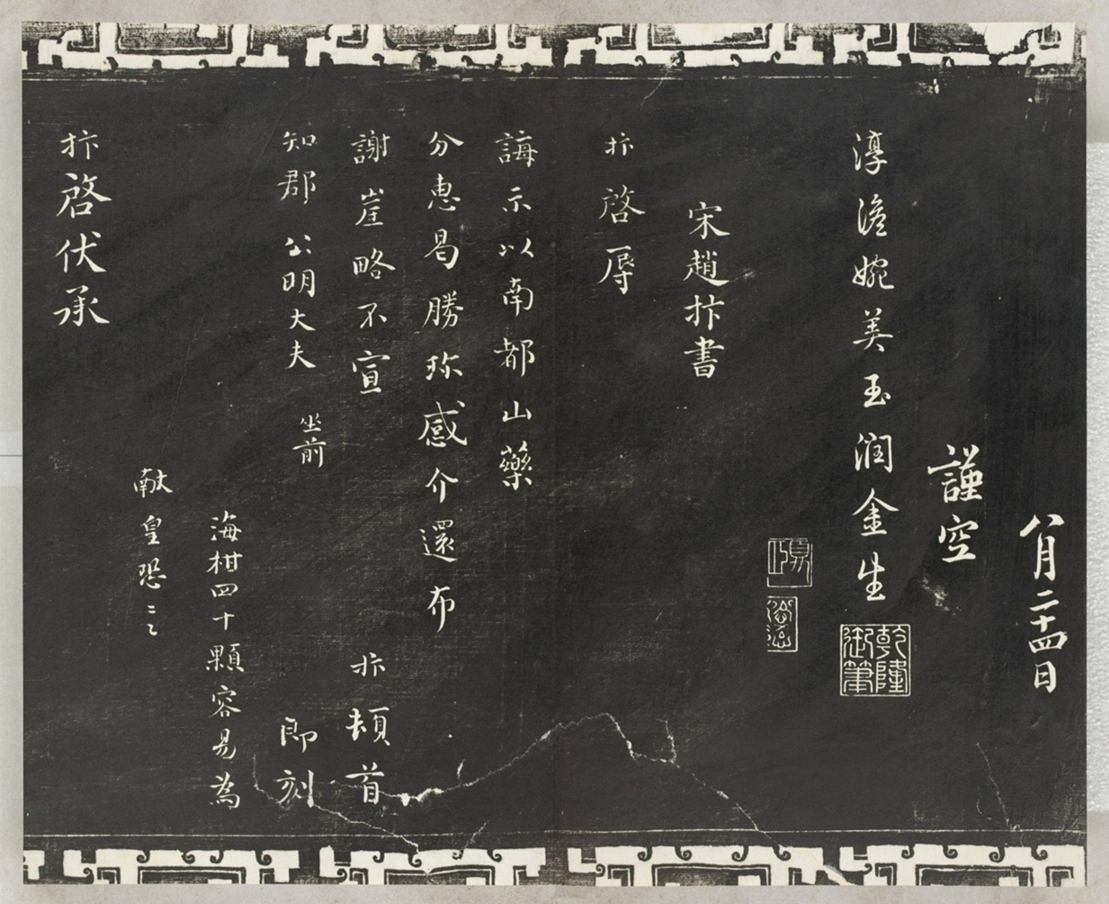 八月二十四日
謹空
淳澹婉美玉潤金生
乾隆御筆
宋趙抃書
抃啓辱
誨示以南都山藥
分惠曷勝珎感介還布
謝崖略不宣 抃頓首
知郡公明大夫坐前 即刻
海柑四十顆容易為
献皇恐〻〻
抃啓伏承